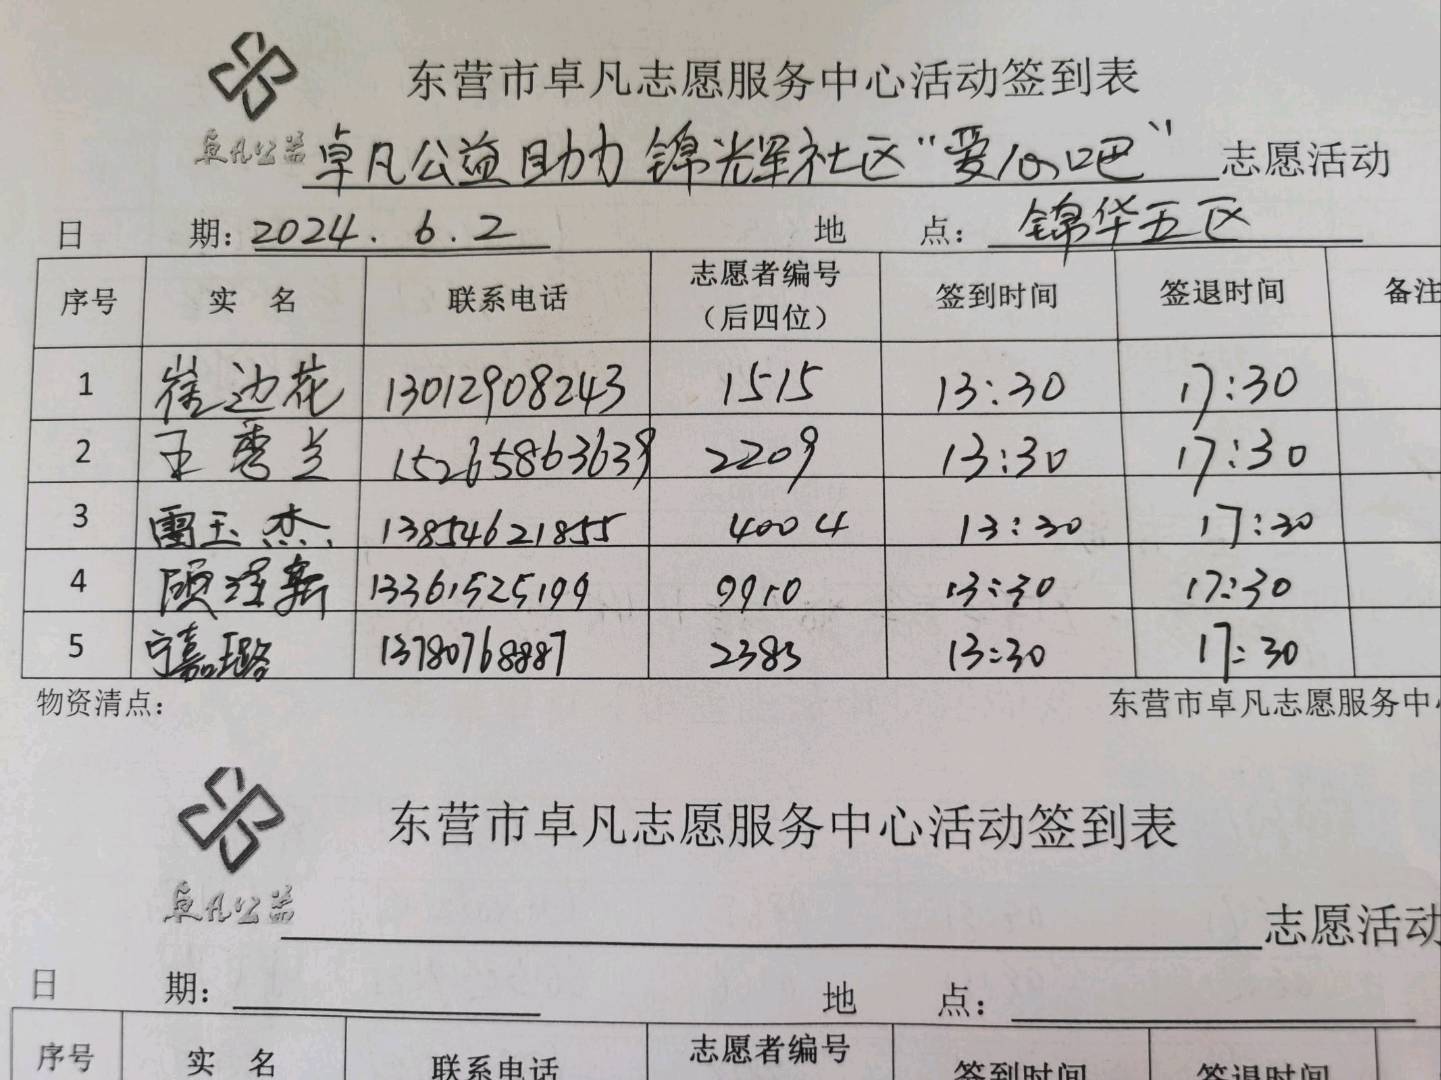 东营市卓凡志愿服务中心活动签到表
卓凡公益
卓凡公益助力锦辉社区“爱心吧”志愿活动
日 期：2024.6.2 地 点：锦华五区
序号 实 名 联系电话 志愿者编号（后四位） 签到时间 签退时间 备注
1 崔边花 13012908243 1515 13:30 17:30
2 王秀兰 15265863639 2209 13:30 17:30
3 雷玉杰 13854621855 4004 13:30 17:30
4 顾泽新 13361525199 9910 13:30 17:30
5 宁嘉璐 13780768887 2383 13:30 17:30
物资清点： 东营市卓凡志愿服务中
东营市卓凡志愿服务中心活动签到表
卓凡公益
志愿活动
日 期： 地 点：
序号 实 名 联系电话 志愿者编号 签到时间 签退时间